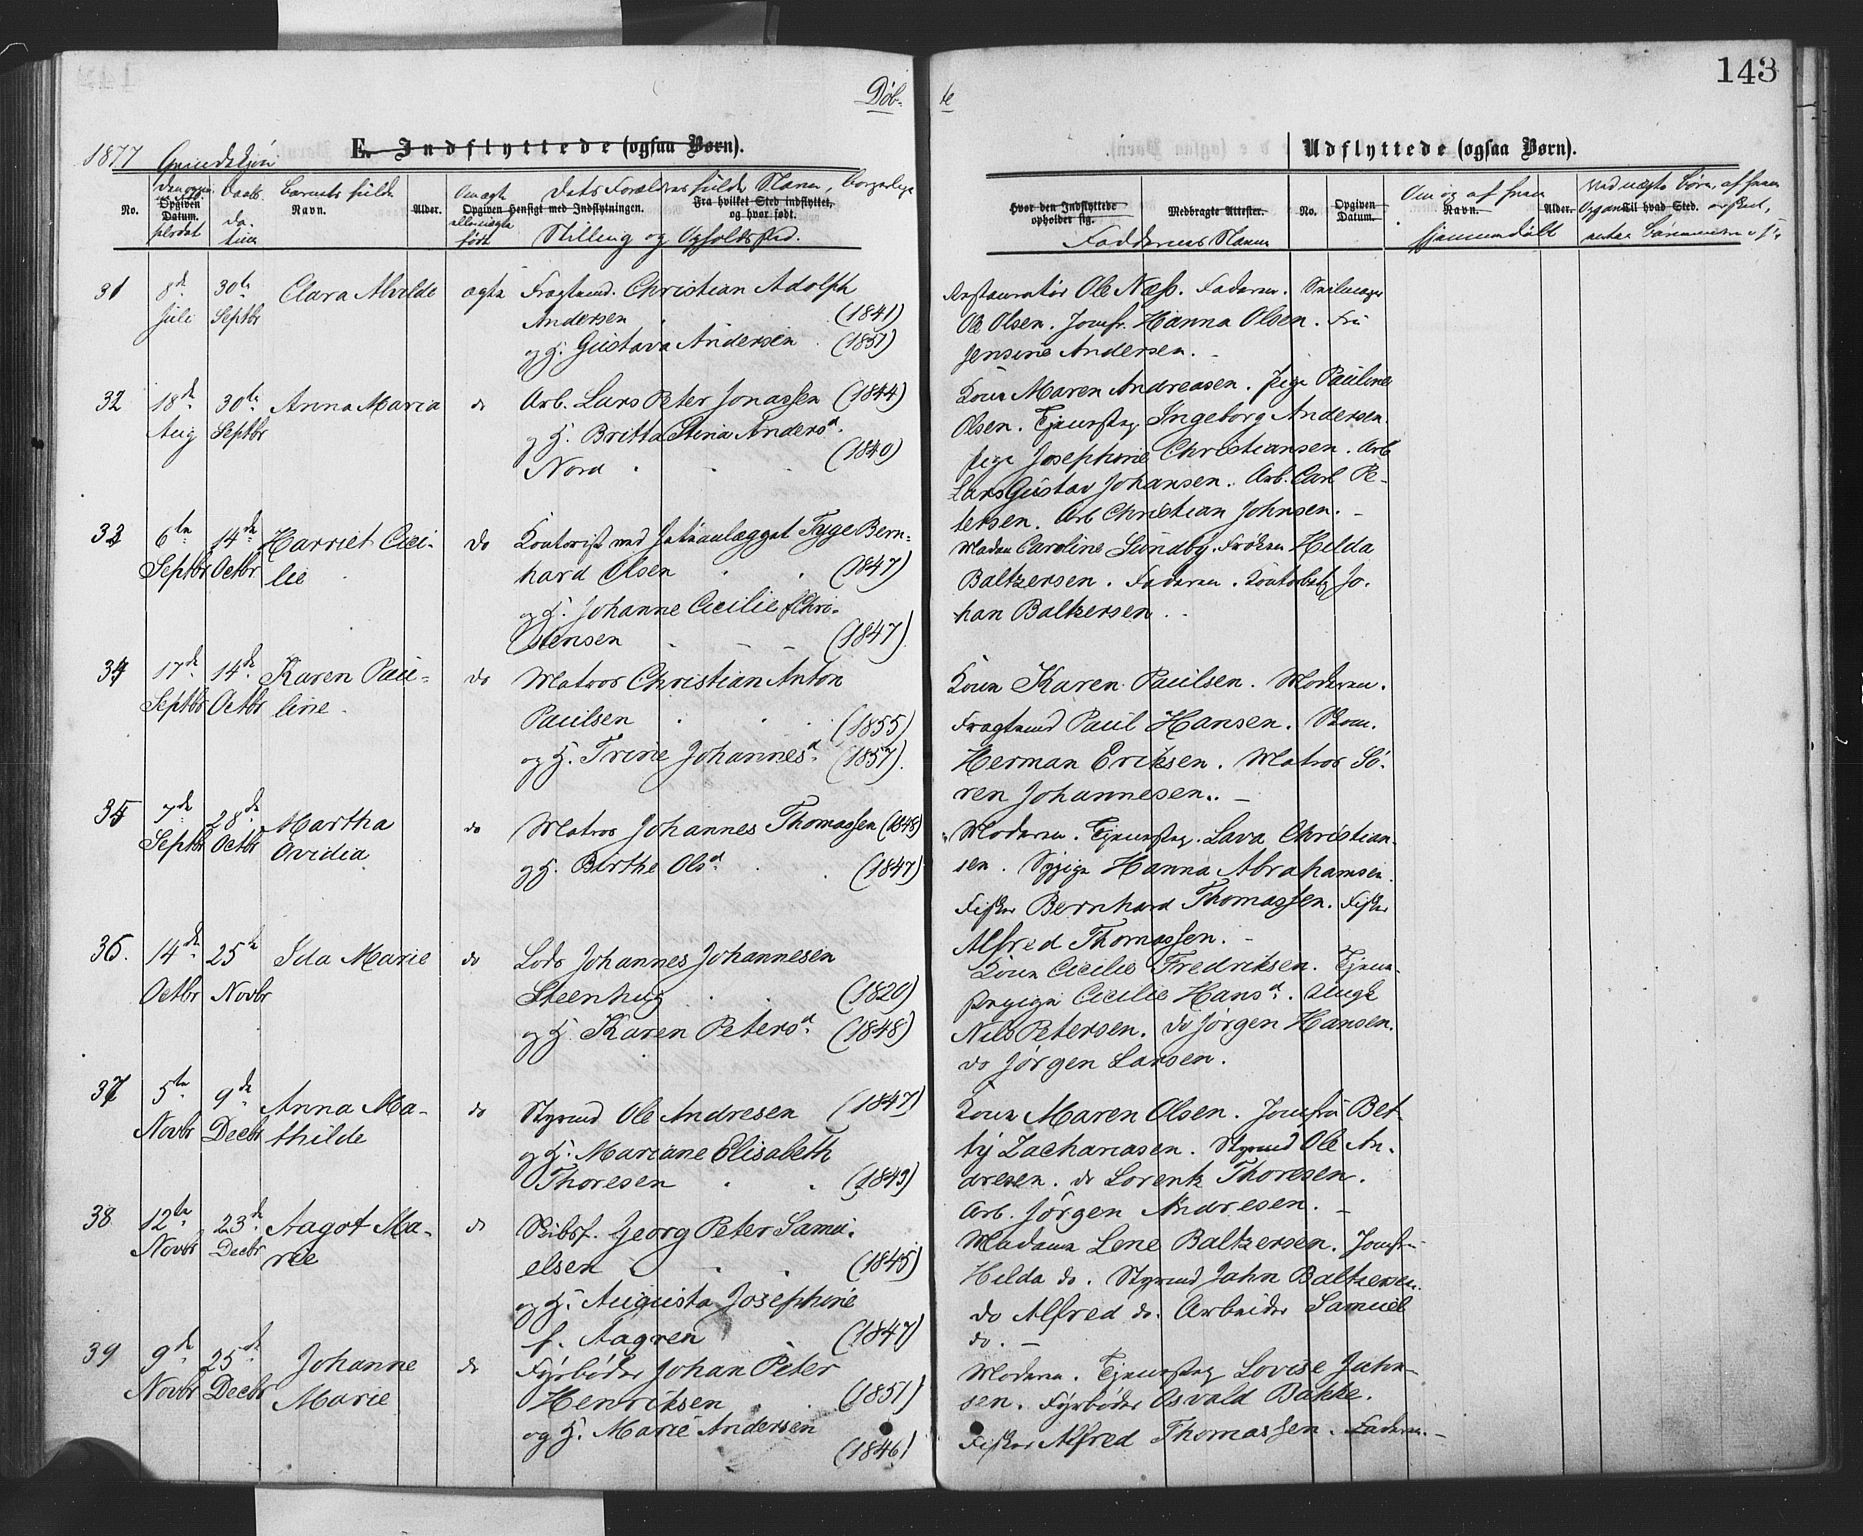 143
Døb- te
1877 Qvindekjøn
E. Indflyttede (ogsaa Børn).
Udflyttede (ogsaa Børn).
No. Opgiven Datum. Daabs Barnets fulde Navn. Alder. Om ægte Opgiven Hensigt med Indflytningen. Dets Forældres fulde Navn, borgerlige Fra hvilket Sted indflyttet, og hvor født.
Stilling og Opholdssted.
Hvor den Indflyttede opholder sig. Medbragte Attester. No. Opgiven Datum. Om og af hvem Navn. Alder. Til hvad Sted.
Faddernes Navne hjemmedøbt
31 8de Juli 30te Septbr Clara Alvilde ægte Fragtmd. Christian Adolph
Andersen (1841)
og H. Gustava Andersen (1851)
Restauratør Ole Næss. Faderen. Seilmager
Ole Olsen. Jomfr. Hanna Olsen. Fru
Jensine Andersen.
32 18de Aug 30te Septbr Anna Maria do Arb. Lars Peter Jonassen (1844)
og H. Britta Stina Andersd.
Nora (1840)
Kone Maren Andreasen. Pige Pauline
Olsen. Tjenestpg Ingeborg Andersen.
Pige Josephine Christiansen. Arb
Lars Gustav Johansen. Arb. Carl Pe-
tersen. Arb Christian Johnsen.
33 6te Septbr 14de Octbr Harriet Ceci-
lie do Kontorist ved Tyge Bern-
hard Olsen (1847)
og H. Johanne Cecilie f Chri-
stensen (1847)
Madam Caroline Sundby. Frøken Hilda
Baltzersen. Faderen. Kontorbetj Jo-
han Baltzersen.
34 17de Septbr 14de Octbr Karen Pau-
line do Matros Christian Anton
Paulsen (1855)
og H. Trine Johannesd. (1857).
Kone Karen Paulsen. Moderen.
Fragtmd Paul Hansen. Skom.
Herman Eriksen. Matros Sø-
ren Johannesen.
35 7de Septbr 28de Octbr Martha
Ovidia do Matros Johannes Thomassen (1848)
og H. Berthe Olsd. (1847)
Moderen. Tjenestpg. Lava Christian-
sen. Sypige Hanna Abrahamsen.
Fisker Bernhard Thomassen. Fisker
Alfred Thomassen.
36. 14de Octbr 25de Novbr Ida Marie do Lods Johannes Johannesen
Steenhug (1820)
og H. Karen Petersd. (1848)
Kone Cecilie Fredriksen. Tjene-
stepige Cecilie Hansd. Ungk
Nils Petersen. do Jørgen Hansen.
do Jørgen Larsen.
37 5te Novbr 9de Decbr Anna Ma-
thilde do Styrmd Ole Andresen (1847)
og H. Mariane Elisabeth
Thoresen (1849)
Kone Maren Olsen. Jomfru Bet-
ty Zachariasen. Styrmd Ole An-
dresen. do Lorentz Thoresen.
Arb. Jørgen Andresen.
38 12te Novbr 23de Decbr Aagot Ma-
rie do Skibsf. Georg Peter Samu-
elsen (1845)
og H. Augusta Josephine
f. Aagren (1847)
Madame Lene Baltzersen. Jomfru
Hilda do. Styrmd Jahn Baltzersen.
do Alfred do. Arbeider Samuel
do.
39 9de Novbr 25de Decbr Johanne
Marie do Fyrbøder Johan Peter
Henriksen (1851)
og H. Marie Andersen
(1846)
Moderen. Tjenestpg Lovise Jahn-
sen. Fyrbøder Osvald Bakke.
Fisker Alfred Thomassen. Faderen.